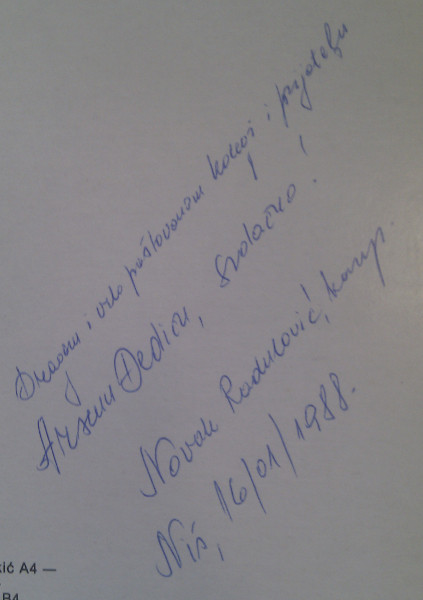 Dragom i vrlo poštovanom kolegi i prijatelju
Arsenu Dediću, srdačno!
Novak Radulović, komp.
Niš, 16/01/1988.
kić A4 —
B4